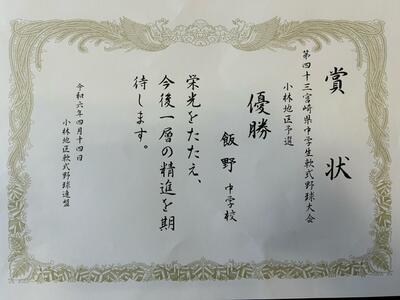 賞状
第四十三宮崎県中学生軟式野球大会
小林地区予選
優勝
飯野 中学校
栄光をたたえ、
今後一層の精進を期
待します。
令和六年四月十四日
小林地区軟式野球連盟